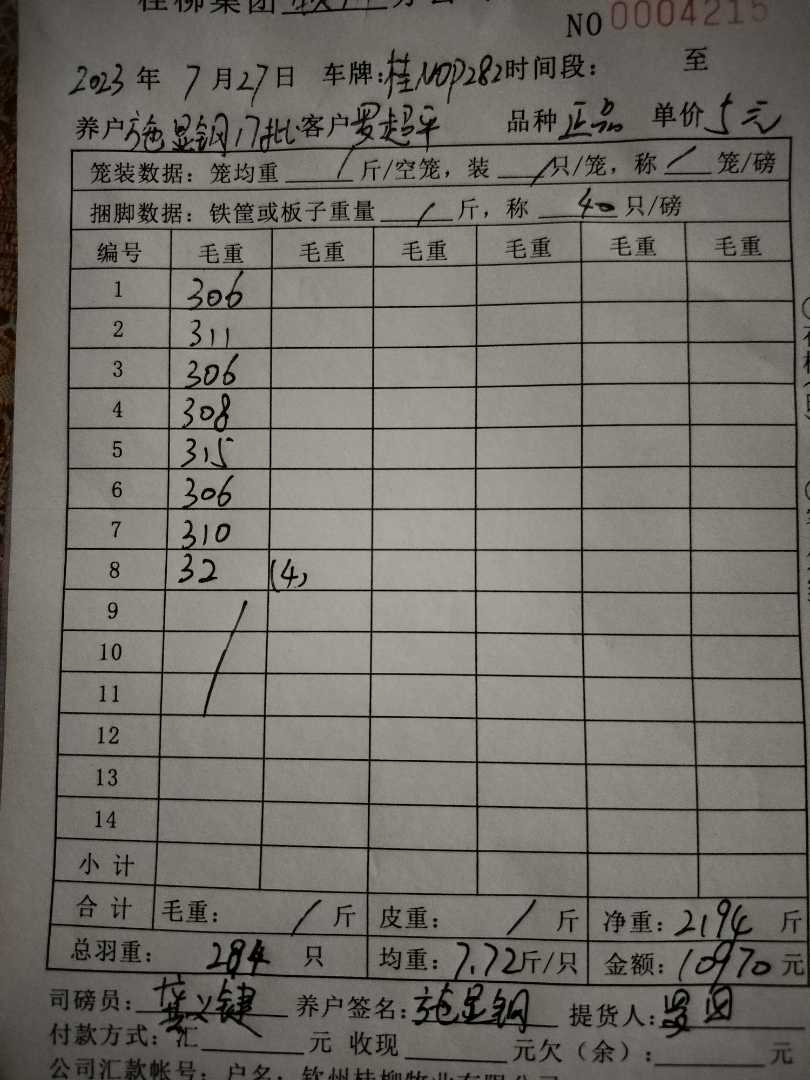 桂柳集团
NO 0004215
2023 年 7 月 27 日 车牌:桂NOP282 时间段: 至
养户 施显钢17批 客户 罗超平 品种 正品 单价 5 元
笼装数据: 笼均重 / 斤/空笼, 装 / 只/笼, 称 / 笼/磅
捆脚数据: 铁筐或板子重量 / 斤, 称 40 只/磅
编号 毛重 毛重 毛重 毛重 毛重 毛重
1 306
2 311
3 306
4 308
5 315
6 306
7 310
8 32 (4)
9
10
11
12
13
14
小 计
合 计 毛重: / 斤 皮重: / 斤 净重: 2194 斤
总羽重: 284 只 均重: 7.72 斤/只 金额: 10970 元
司磅员: 义键 养户签名: 施显钢 提货人: 罗
付款方式: 汇 元 收现 元欠(余): 元
公司汇款帐号: 户名: 钦州桂柳牧业有限公司